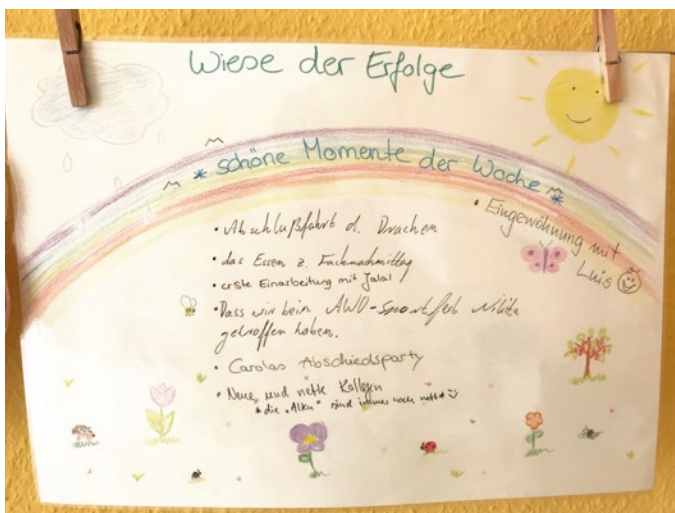 Wiese der Erfolge
* schöne Momente der Woche *
• Eingewöhnung mit
Luis
• Abschlußfahrt d. Drachen
• das Essen z. Fachnachmittag
• erste Einarbeitung mit Jalal
• Dass wir beim AWO-Sportfest Nikita
getroffen haben.
• Carolas Abschiedsparty
• Neue und nette Kollegen
* die „Alten“ sind immer noch nett *